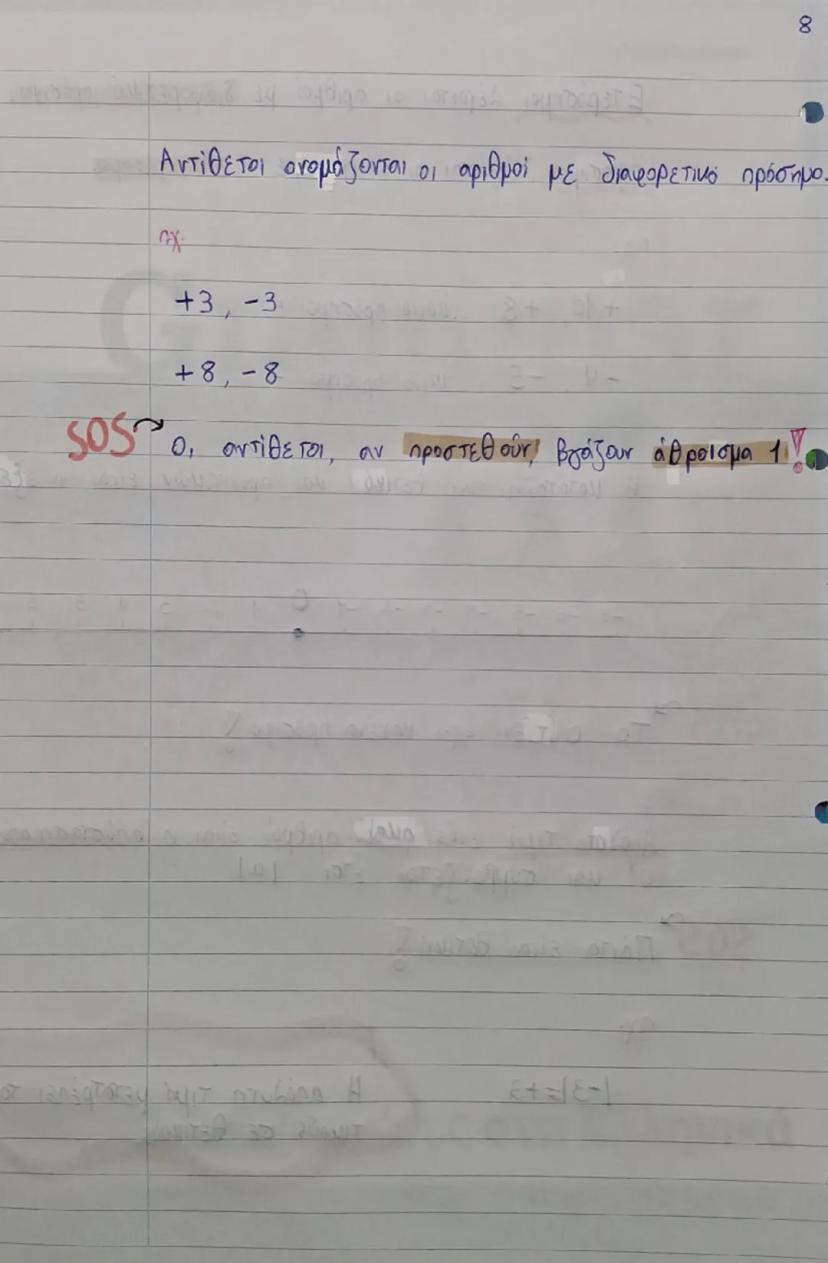 8
Αντίθετοι ονομάζονται οι αριθμοί με διαφορετικό πρόσημο.
πχ.
+3, -3
+8, -8
SOS Οι αντίθετοι, αν προστεθούν, βγάζουν άθροισμα 1!